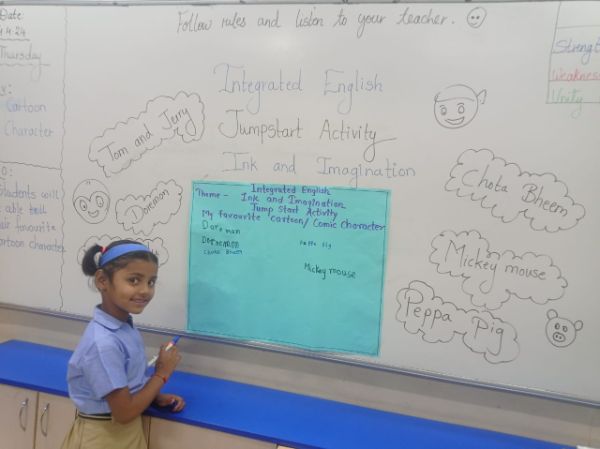 Follow rules and listen to your teacher.
Date:
4.4.24
Thursday
Cartoon
Character
Students will
able tell
favourite
cartoon character
Integrated English
Jumpstart Activity
Ink and Imagination
Tom and Jerry
Doremon
Integrated English
Theme - Ink and Imagination
Jump Start Activity
My favourite cartoon/Comic Character
Doremon
Chota Bheem
Peppa Pig
Mickey mouse
Chota Bheem
Mickey mouse
Peppa Pig
Strengt
Weakness
Unity